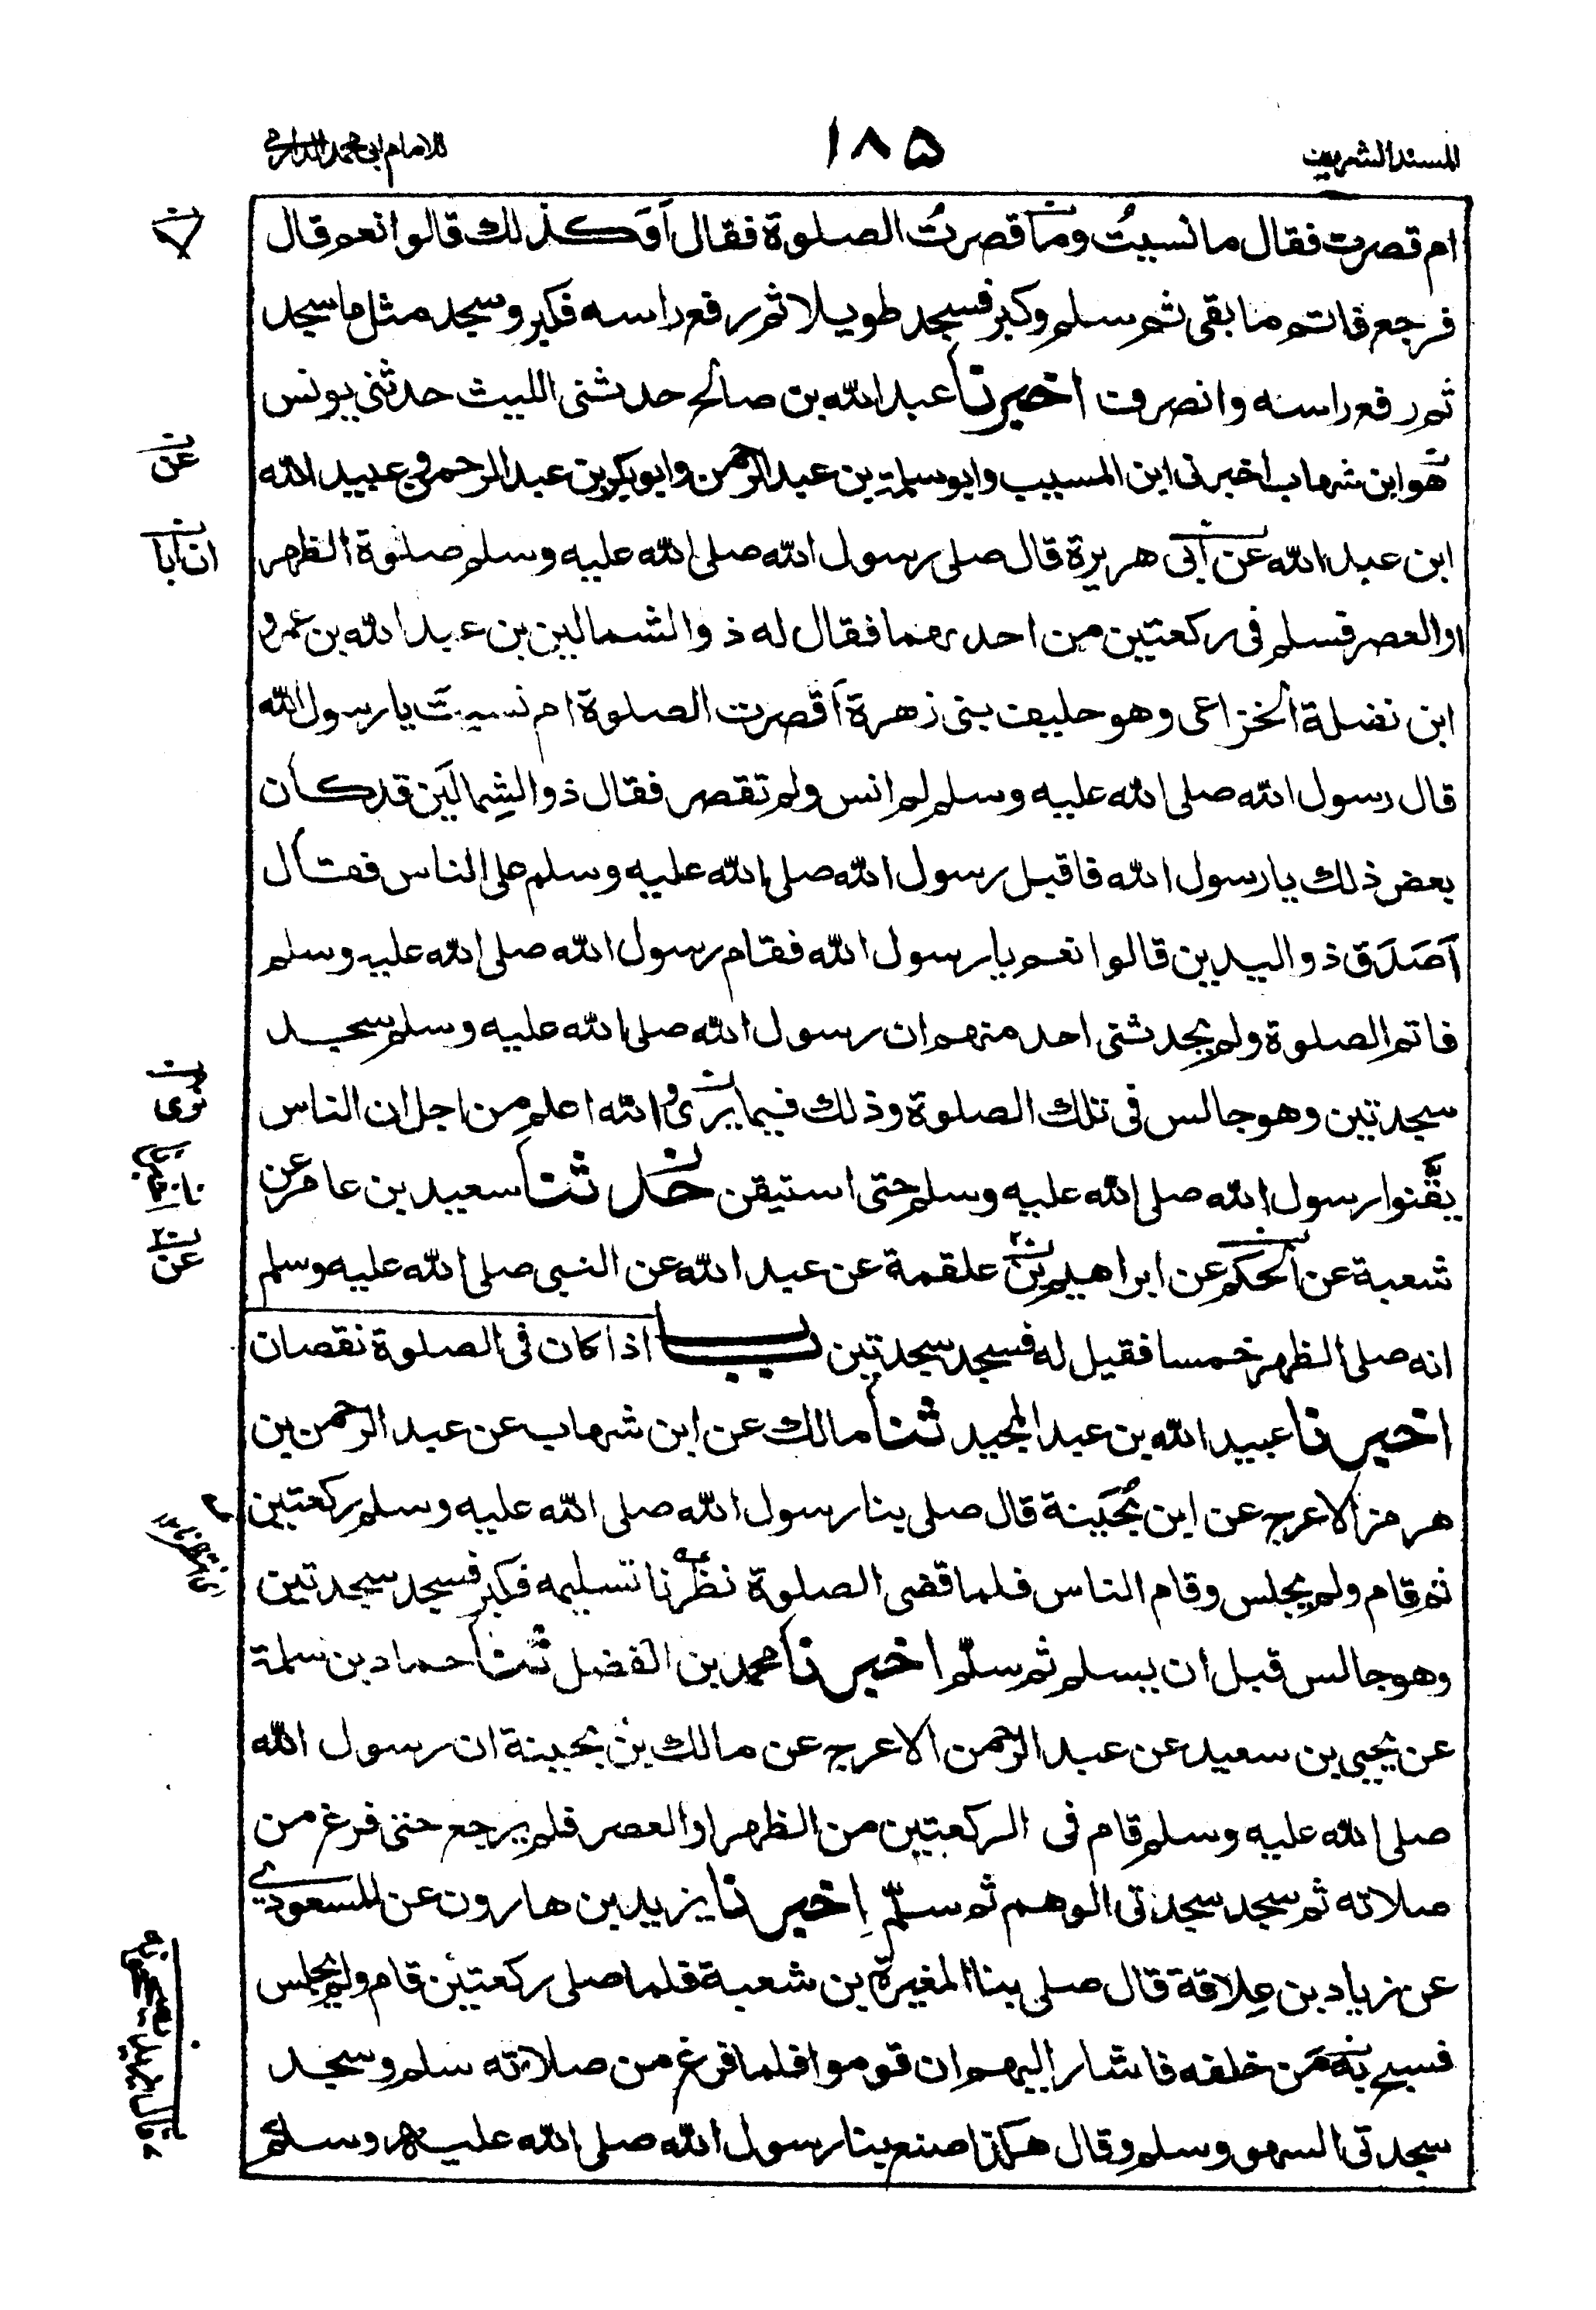 المسند الشريف
١٨٥
للامام ابى محمد الدارمى
ام قصرت فقال ما نسيتُ وما قصرتُ الصلوة فقال اَوَكذلك قالوا نعم قال
فرجع فاتم ما بقى ثم سلم وكبر فسجد طويلا ثم رفع راسه فكبر وسجد مثل ما سجد
ثم رفع راسه وانصرف اخبرنا عبد الله بن صالح حدثنى الليث حدثنى يونس
هو ابن شهاب اخبرنى ابن المسيب وابو سلمة بن عبد الرحمن وابو بكر بن عبد الرحمن وعبيد الله
ابن عبد الله عن ابى هريرة قال صلى رسول الله صلى الله عليه وسلم صلوة الظهر
او العصر فسلم فى ركعتين من احدىهما فقال له ذو الشمالين بن عبد الله بن عمرو
ابن نضلة الخزاعى وهو حليف بنى زهرة اَقصرت الصلوة ام نسيتَ يا رسول الله
قال رسول الله صلى الله عليه وسلم لم انس ولم تقصر فقال ذو الشِمالَين قد كان
بعض ذلك يا رسول الله فاقبل رسول الله صلى الله عليه وسلم على الناس فقال
اَصَدَق ذو اليدين قالوا نعم يا رسول الله فقام رسول الله صلى الله عليه وسلم
فاتم الصلوة ولم يحدثنى احد منهم ان رسول الله صلى الله عليه وسلم سجد
سجدتين وهو جالس فى تلك الصلوة وذلك فيما يرى والله اعلم من اجل ان الناس
يقَّنوا رسول الله صلى الله عليه وسلم حتى استيقن حدثنا سعيد بن عامر عن
شعبة عن الحكم عن ابراهيم بن علقمة عن عبد الله عن النبى صلى الله عليه وسلم
انه صلى الظهر خمسا فقيل له فسجد سجدتين باب اذا كان فى الصلوة نقصان
اخبرنا عبيد الله بن عبد المجيد ثنا مالك عن ابن شهاب عن عبد الرحمن بن
هرمز الاعرج عن ابن بُحَينة قال صلى بنا رسول الله صلى الله عليه وسلم ركعتين
ثم قام ولم يجلس وقام الناس فلما قضى الصلوة نظرنا تسليمه فكبر فسجد سجدتين
وهو جالس قبل ان يسلم ثم سلّم اخبرنا محمد بن الفضل ثنا حماد بن سلمة
عن يحيى بن سعيد عن عبد الرحمن الاعرج عن مالك بن بحينة ان رسول الله
صلى الله عليه وسلم قام فى الركعتين من الظهر او العصر فلم يرجع حتى فرغ من
صلاته ثم سجد سجدتى الوهم ثم سلّم اخبرنا يزيد بن هارون عن المسعودي
عن زياد بن عِلاقة قال صلى بنا المغيرة بن شعبة فلما صلى ركعتين قام ولم يجلس
فسبح به مَن خلفه فاشار اليهم ان قوموا فلما فرغ من صلاته سلم وسجد
سجدتى السهو وسلم وقال هكذا صنع بنا رسول الله صلى الله عليه وسلم
عن
ان ابا
نُرى
عن